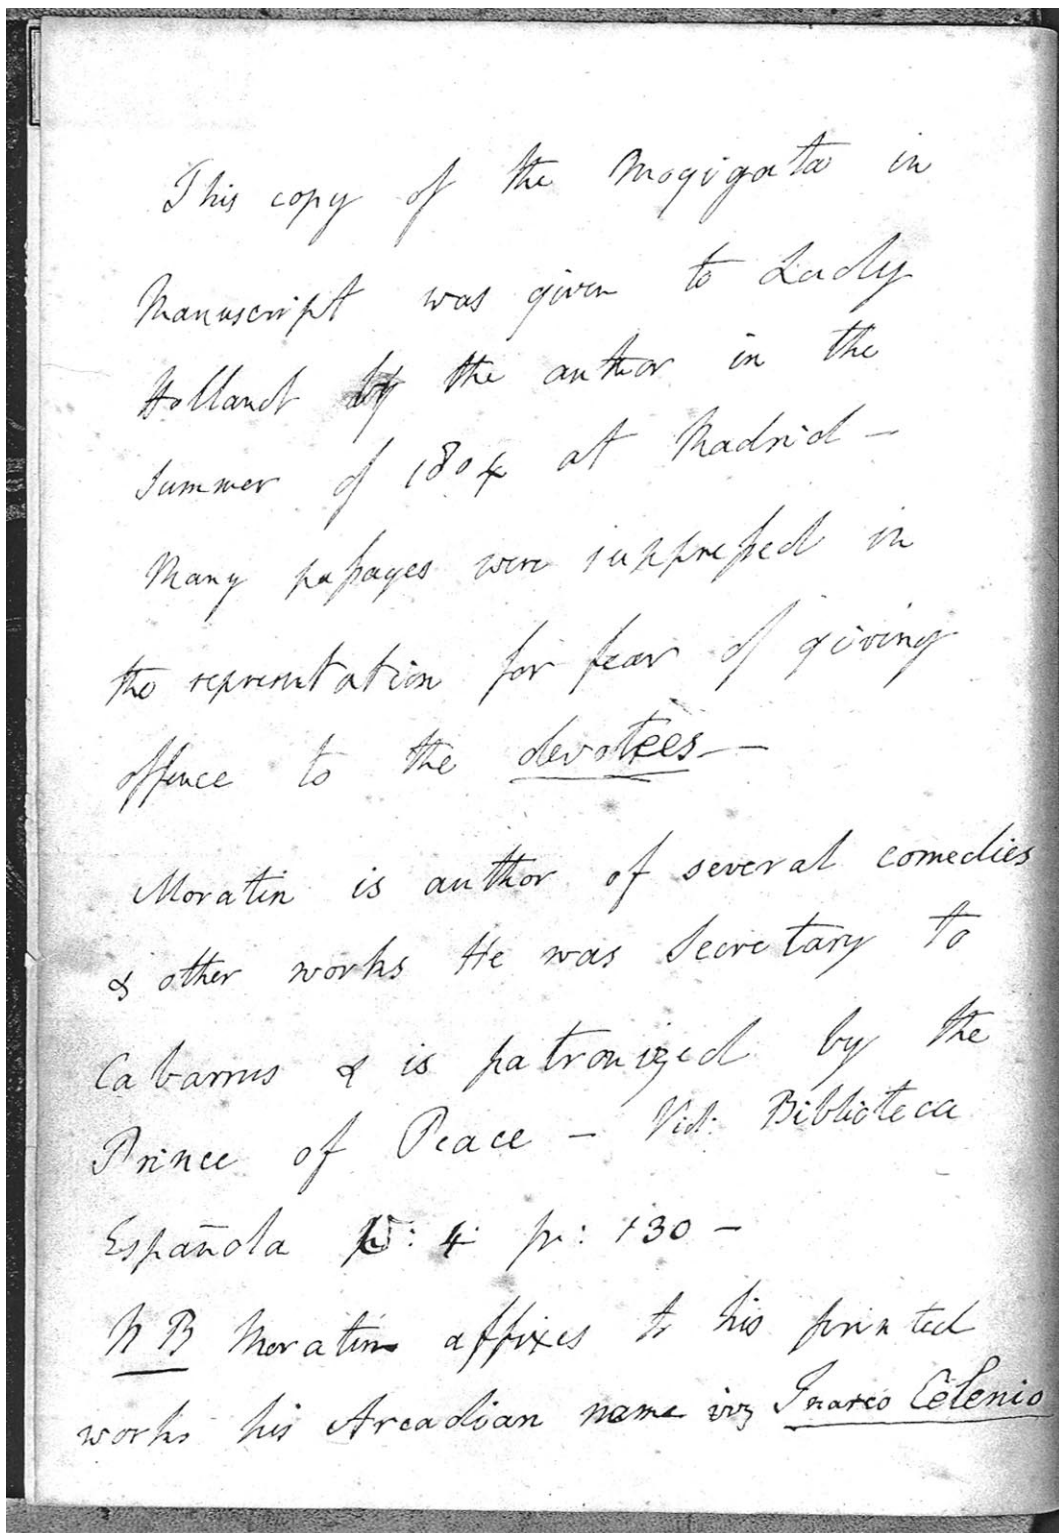 This copy of the Mogigata in
Manuscript was given to Lady
Holland by the author in the
Summer of 1804 at Madrid —
Many paſsages were suppreſsed in
the representation for fear of giving
offence to the devotees — —
Moratin is author of several comedies
& other works He was Secretary to
Cabarrus & is patronized by the
Prince of Peace — Vid: Biblioteca
Española : 4 p: 130 —
NB Moratin affixes to his printed
works his Arcadian name viz Inarco Celenio